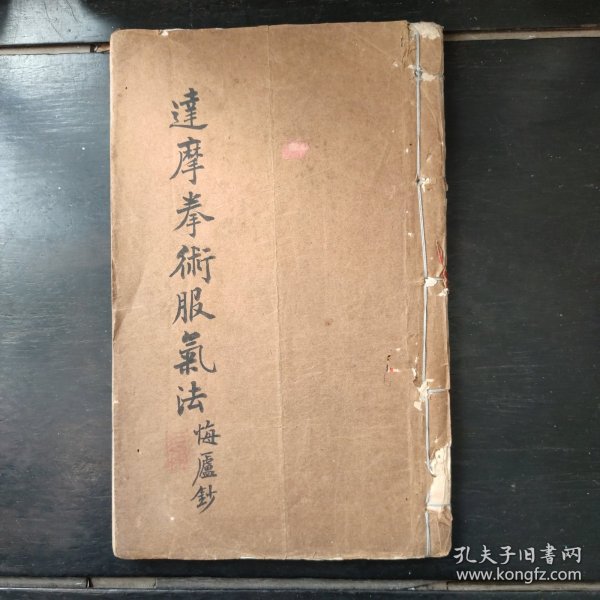 達摩拳術服氣法
悔廬鈔
孔夫子旧书网
www.kongfz.com